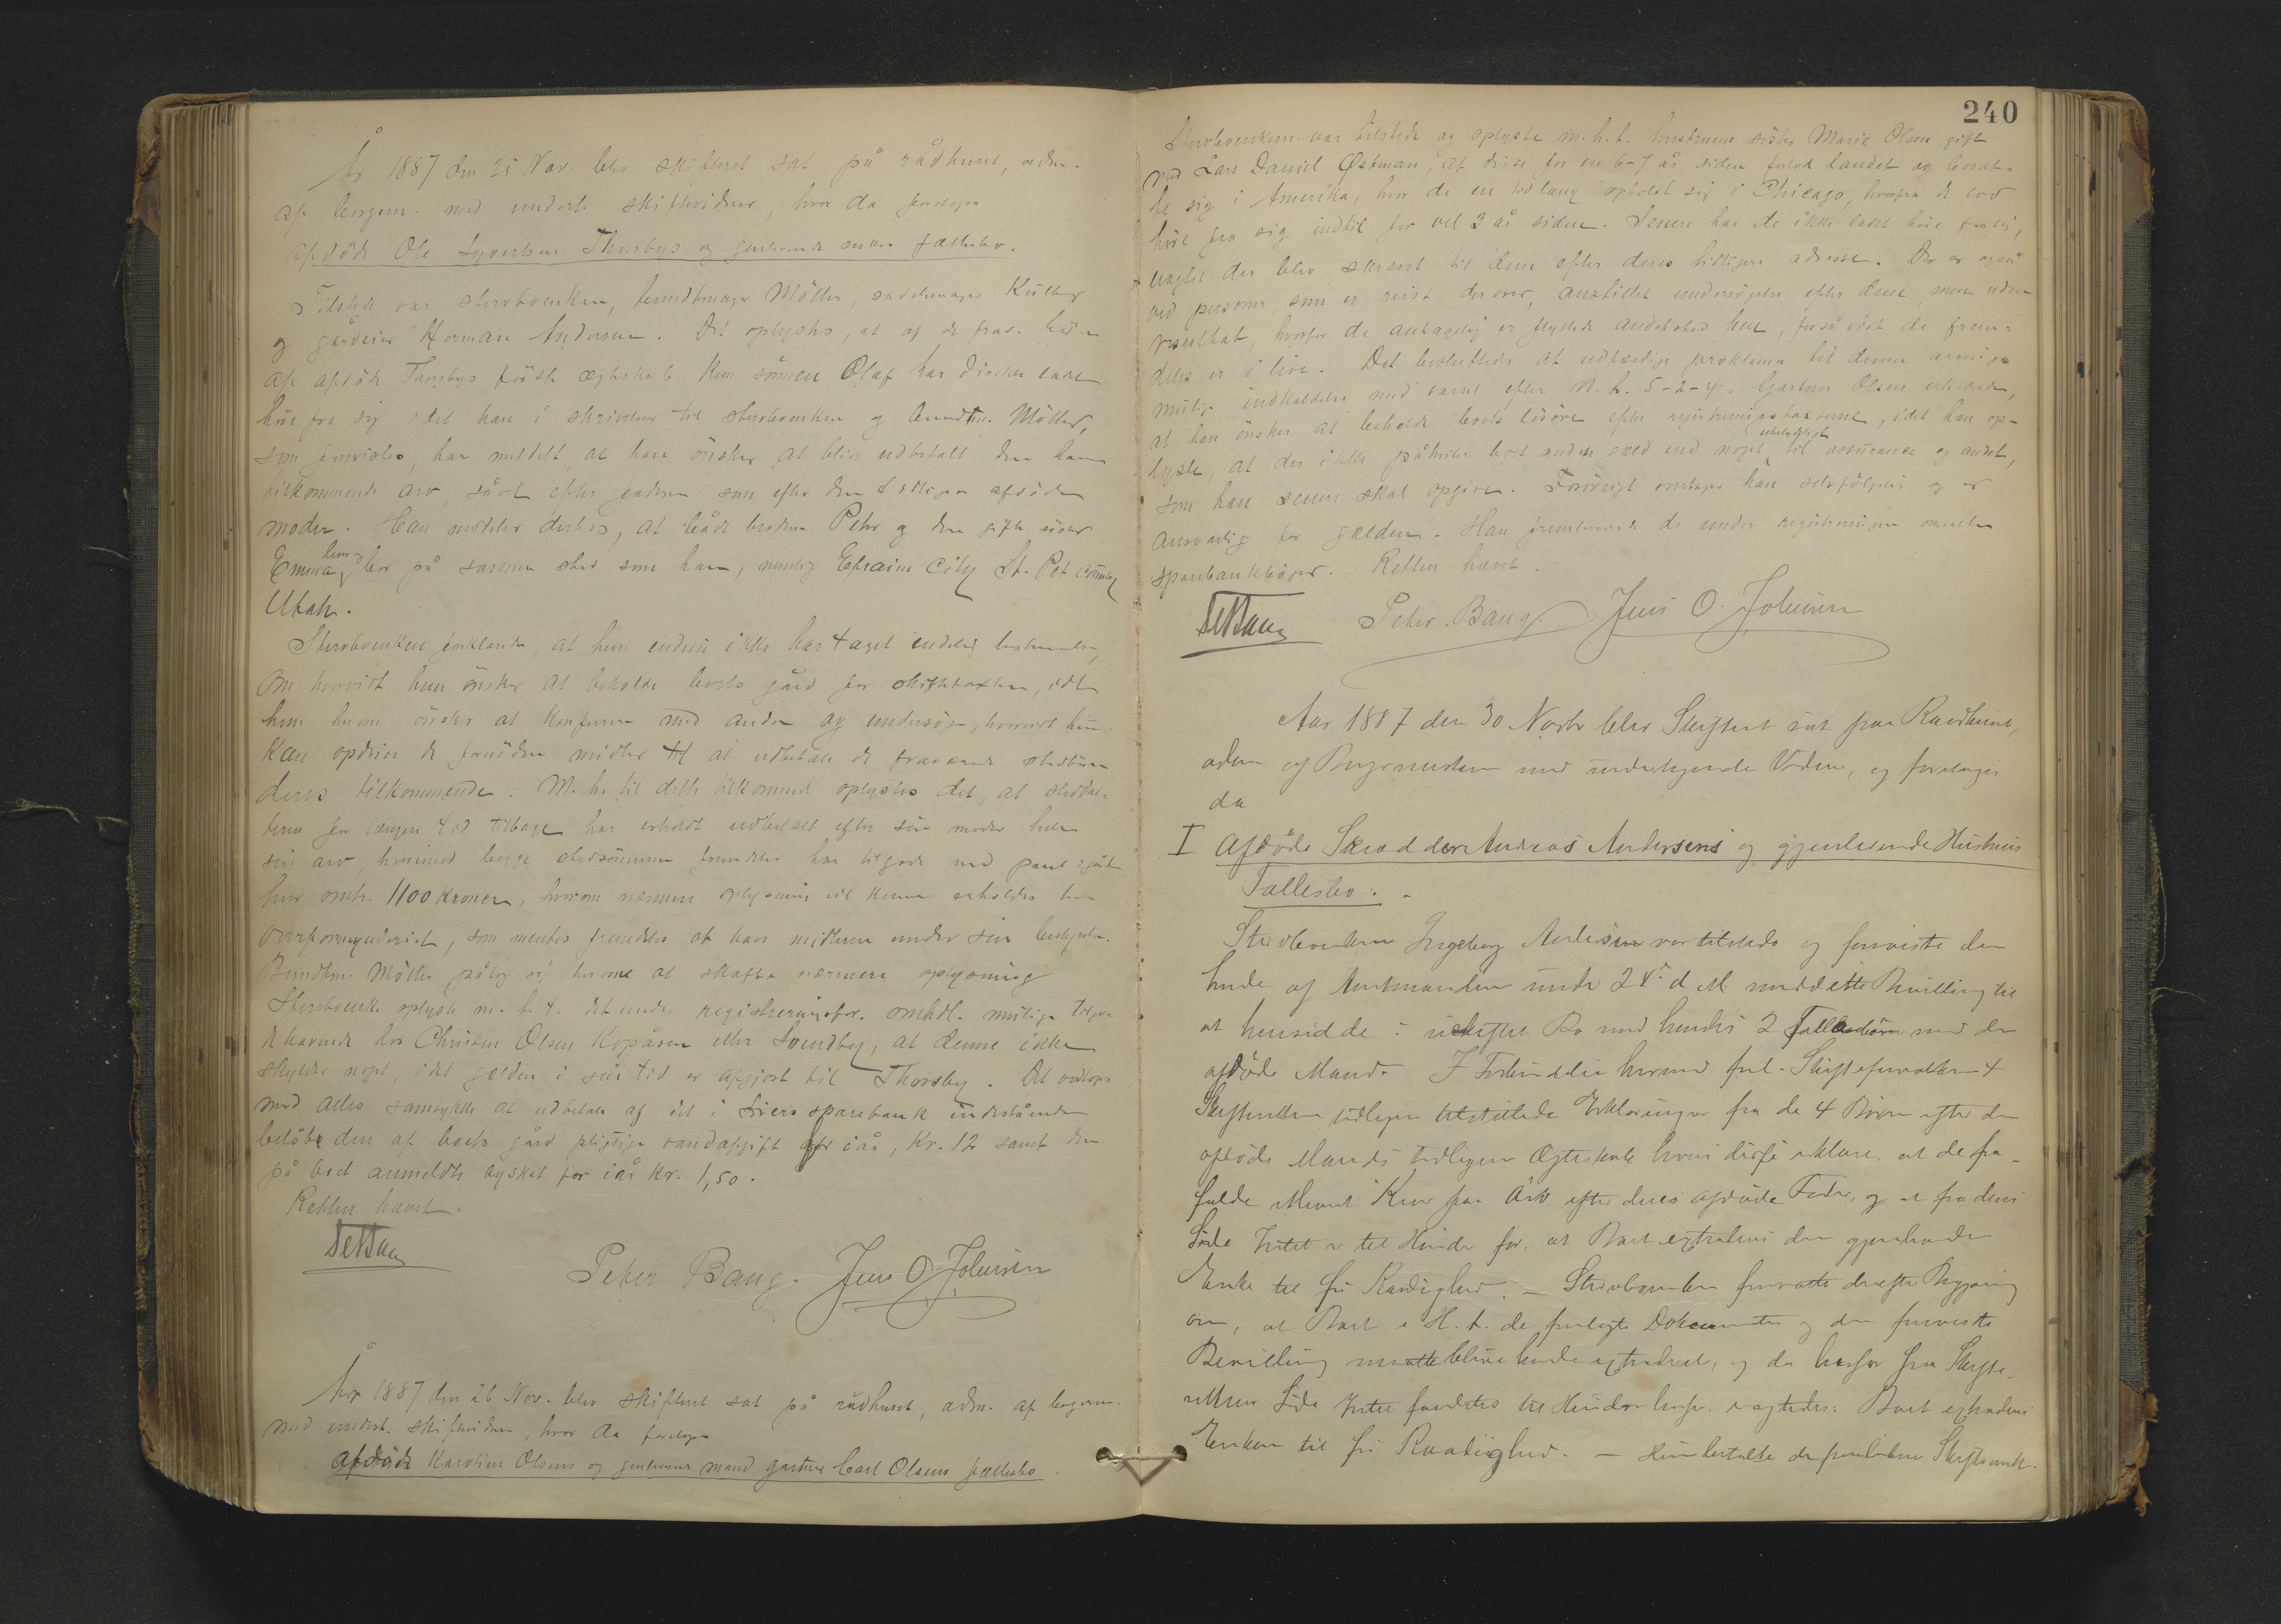 År 1887 den 25 Nov. blev skifteret sat på rådhuset, adm.
af borgerm. med undert. skiftevidner, hvor da foretoges
afdöde Ole Syvertsen Thorsbys og gjenlevende enkes fællesbo.
Tilstede var stervboenken, bundtmager Möller, sadelmager
og gårdeier Herman Andersen. Det oplystes, at af de frav.
af afdöde Thorsbys förste ægteskab kun sönnen Olaf har
fra sig, idet han i skrivelser til stervboenken og bundtm. Möller,
som forevistes, har meddelt, at han önsker at blive udbetalt den ham
tilkommende arv, såvel efter faderen som efter den tidligere afdöde
moder. Han meddeler derhos, at både broderen Peter og den gifte söster
Emma, lever og bor på samme sted som han, nemlig Efraim City St. Pet County
Utah.
Stervboenken forklarede, at hun endnu ikke har taget endelig bestemmelse,
om hvorvidt hun önsker at beholde boets gård for skiftetaxten, idet
hun herom önsker at konferere med andre og undersöge, hvorvidt hun
kan opdrive de fornödne midler til at udbetale de fraværende stedbörn
deres tilkommende. M. h. til dette tilkommende oplystes det, at steddat-
teren for længere tid tilbage har erholdt udbetalt efter sin moder hele
sin arv, hvorimod begge stedsönnerne fremdeles har tilgode med pant i gården
hver omtr. 1100 kroner, hvorom nærmere oplysning vil kunne erholdes hos
overformynderiet, som mentes fremdeles at have midlerne under sin bestyrelse.
Bundtm. Möller påtog sig herom at skaffe nærmere oplysning
Stervboenk. oplyste m. h. t. det under registreringsfor. omhdl. mulige tilgo-
dehavende hos Christen Olsen Kopåsen eller Svendby, at denne ikke
skylder noget, idet gælden i sin tid er afgjort til Thorsby. Det vedtoges
med alles samtykke at udbetale af det i Liers sparebank indestående
belöb den af boets gård pligtige vandafgift for iår, Kr. 12 samt den
på boet anmeldte byskat for iår Kr. 1,50.
Retten hævet.
Peter Baug. Jens O. Johnsen
År 1887 den 26 Nov. blev skifteret sat på rådhuset, adm. af borgerm.
med undert. skiftevidner, hvor da foretoges
afdöde Karoline Olsens og gjenlevende mand gartner Carl Olsens fællesbo
240
var tilstede og oplyste m. h. t. hustruens söster Marie Olsen, gift
med Lars Daniel Østman, at disse for en 6-7 år siden forlod landet og bosat-
te sig i Amerika, hvor de en tidlang opholdt sig i Chicago, hvorfra de lod
höre fra sig indtil for vel 3 år siden. Senere har de ikke ladet höre fra sig,
uagtet der blev skrevet til dem efter deres tidligere adresse. Der er også
ved personer, som er reist derover, anstillet undersögelse efter dem, men uden
resultat, hvorfor de antagelig er flyttede andetsteds hen, forsåvidt de frem-
deles er i live. Det besluttedes at udfærdige proklama til denne arving
mulige indkaldelse med varsel efter N. L. 5-2-4. Gartner Olsen erklærede,
at han önsker at beholde boets lösöre efter registreringstaxterne, idet han op-
lyste, at der ikke påhviler boet anden gæld end noget ubetydeligt til assurance og andet,
som han senere skal opgive. Forövrigt overtager han selvfölgelig og er
ansvarlig for gælden. Han fremleverede de under registreringen omtalte
sparebankböger. Retten hævet.
Peter Baug. Jens O. Johnsen
Aar 1887 den 30 Novbr blev Skifteret sat paa Raadhuset,
adm. af Borgermesteren med undertegnede Vidner, og foretages
da
I Afdöde Skrædder Andreas Andersens og gjenlevende Hustrues
Fællesbo.
Stervboenken Ingeborg Andersen var tilstede og foreviste den
hende af Amtmanden under 24de d M meddelte Bevilling til
at hensidde i uskiftet Bo med hendes 2 Fællesbörn med den
afdöde Mand. I Forbindelse hermed freml. Skifteforvalteren 4
Skifteretten tidligere tilstillede Erklæringer fra de 4 Börn efter den
afdöde Mands tidligere Ægteskab hvori disse erklærer, at de fra-
falde ethvert Krav paa Arv efter deres afdöde Fader, og at fra deres
Side Intet er til Hinder for, at Boet extraderes den gjenlevende
Enke til fri Raadighed. — Stervboenken fremsatte derefter Begjæring
om, at Boet i H. t. de fremlagte Dokumenter og den foreviste
Bevilling maatte blive hende extraderet, og da herfor fra Skifte-
rettens Side Intet fandtes til Hinder herfor, vedtoges: Boet extraderes
Enken til fri Raadighed. — Hun betalte de